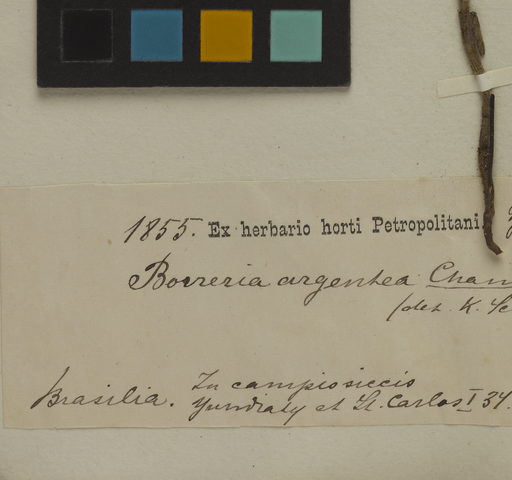 1855. Ex herbario horti Petropolitani
Borreria argentea Cham
(det. K. Sc
Brasilia. In campis siccis
Yundiaty et St. Carlos I 34.